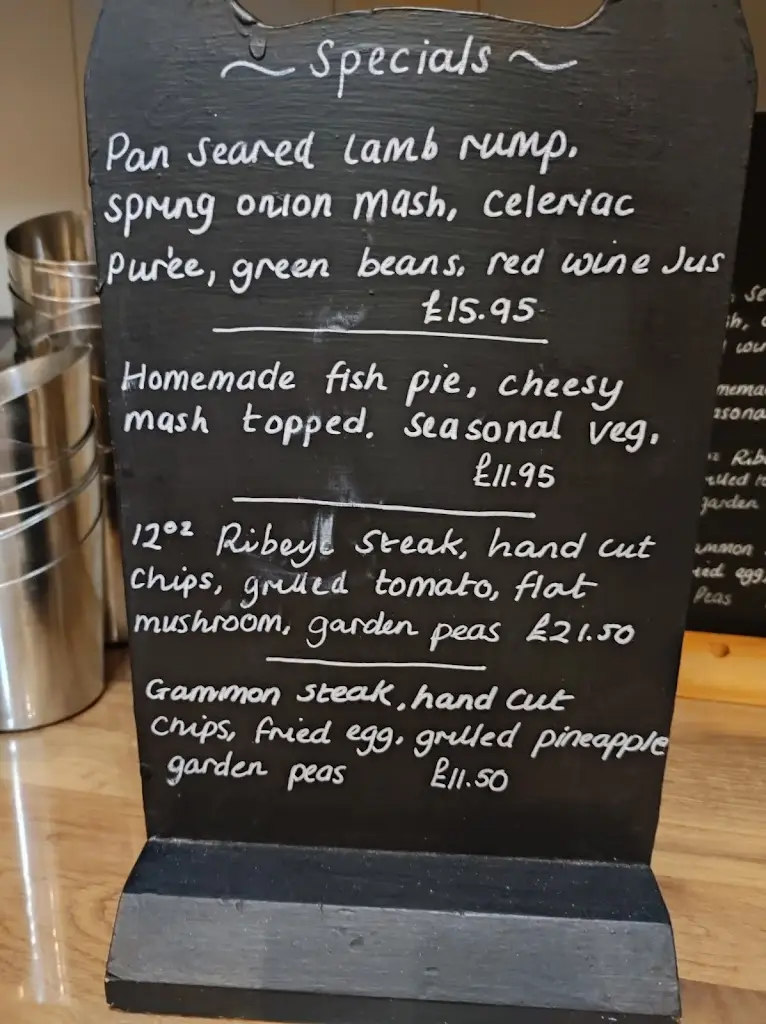 ~ Specials ~
Pan seared lamb rump.
spring onion mash, celeriac
purée, green beans. red wine Jus
£15.95
Homemade fish pie, cheesy
mash topped. seasonal veg.
£11.95
12oz Ribeye steak, hand cut
chips, grilled tomato, flat
mushroom, garden peas £21.50
Gammon steak, hand cut
chips, fried egg. grilled pineapple
garden peas £11.50
Ribe
garden
egg,
Peas